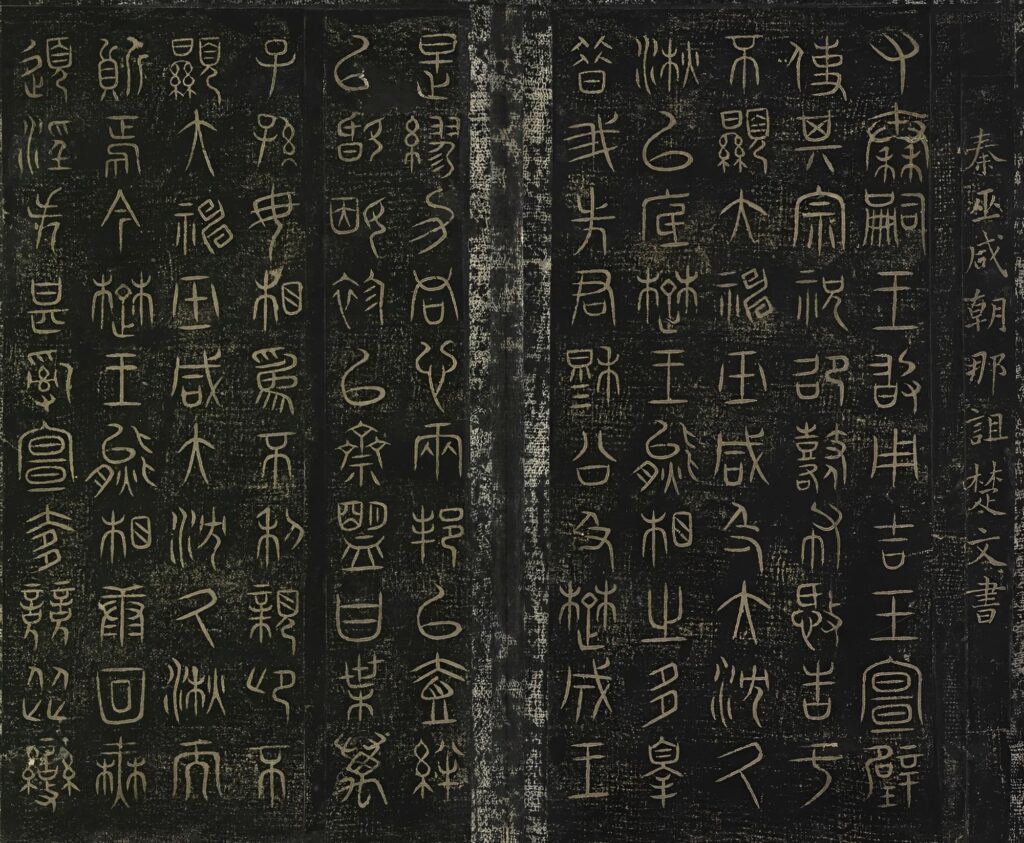 秦巫咸朝那詛楚文書
又秦嗣王敢用吉玉宣璧
使其宗祝邵鼛布憼告于
不顯大神巫咸及大沈久
湫以底楚王熊相之多辠
昔我先君穆公及楚成王
是繆力同心兩邦以壹絆
以婚姻袗以齊盟曰枼萬
子孫毋相為不利親卬不
顯大神巫咸大沈久湫而
質焉今楚王熊相康回無
道淫失甚亂宣侈競從變